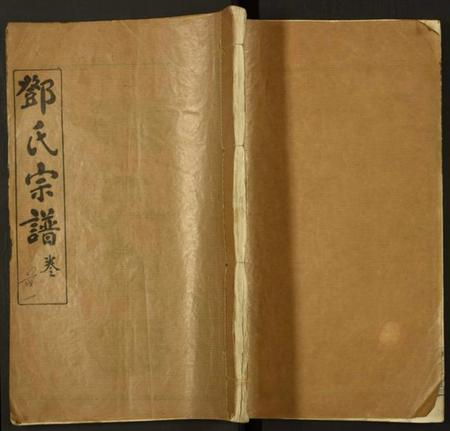 鄧氏宗譜
卷
首一